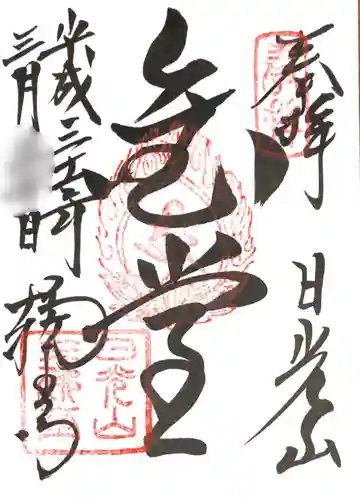 奉拝
日光山
金堂
平成三十年
三月日
輪王寺
日光山